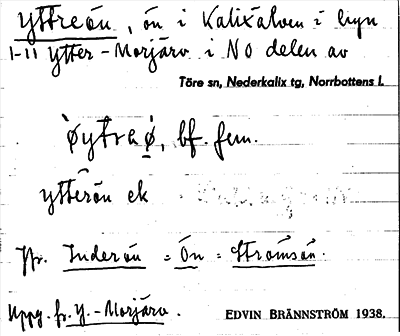 yttreön, ön i Kalixälven i byn
1-11 Ytter-Morjärv i NO delen av
Töre sn, Nederkalix tg, Norrbottens l.
`øytrə ø̀, bf. fem.
ytterön ek
Jfr. Inderön = Ön = Strömsön.
Uppg. fr. Y.-Morjärv.
EDVIN BRÄNNSTRÖM 1938.